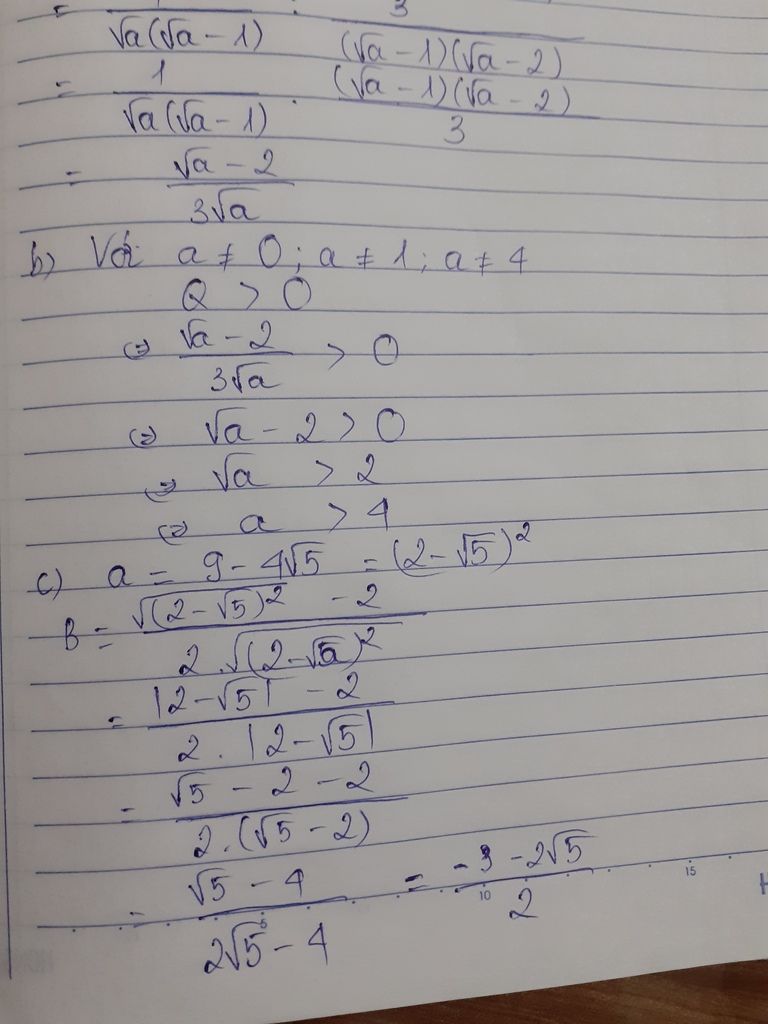 = 1/(√a(√a − 1)) : 3/((√a − 1)(√a − 2))
= 1/(√a(√a − 1)) · ((√a − 1)(√a − 2))/3
= (√a − 2)/(3√a)
b) Với a ≠ 0; a ≠ 1; a ≠ 4
Q > 0
⇔ (√a − 2)/(3√a) > 0
⇔ √a − 2 > 0
⇔ √a > 2
⇔ a > 4
c) a = 9 − 4√5 = (2 − √5)²
B = (√(2 − √5)² − 2)/(2.√(2 − √5)²)
= (|2 − √5| − 2)/(2.|2 − √5|)
= (√5 − 2 − 2)/(2.(√5 − 2))
= (√5 − 4)/(2√5 − 4) = (−3 − 2√5)/2
5 10 15